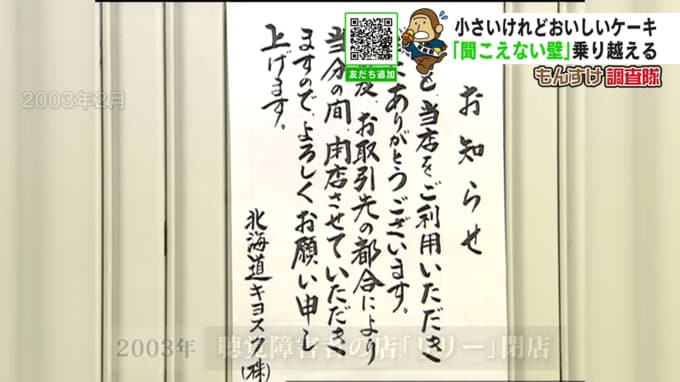 小さいけれどおいしいケーキ
「聞こえない壁」乗り越える
もんすけ調査隊
友だち追加
2003年2月
お知らせ
も、当店をご利用いただき
ありがとうございます。
お取引先の都合により
当分の間、閉店させていただき
ますので、よろしくお願い申し
上げます。
北海道キヨスク(株)
2003年 聴覚障害者の店「リリー」閉店